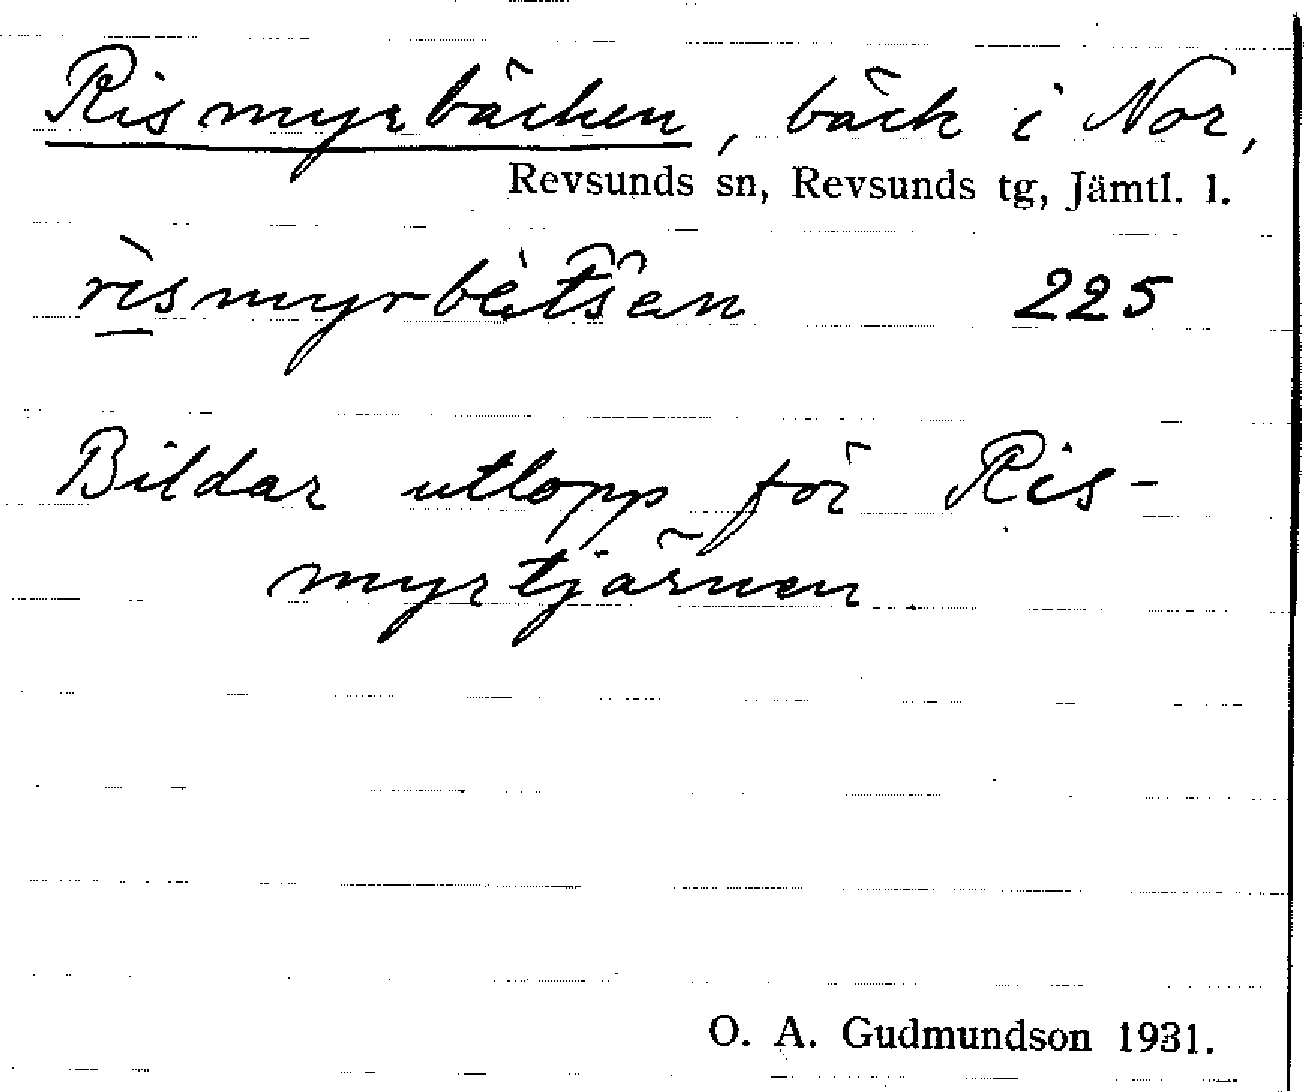 Rismyrbäcken, bäck i Nor,
Revsunds sn, Revsunds tg, Jämtl. l.
225
Bildar utlopp för Ris-
myrtjärnen
O. A. Gudmundson 1931.